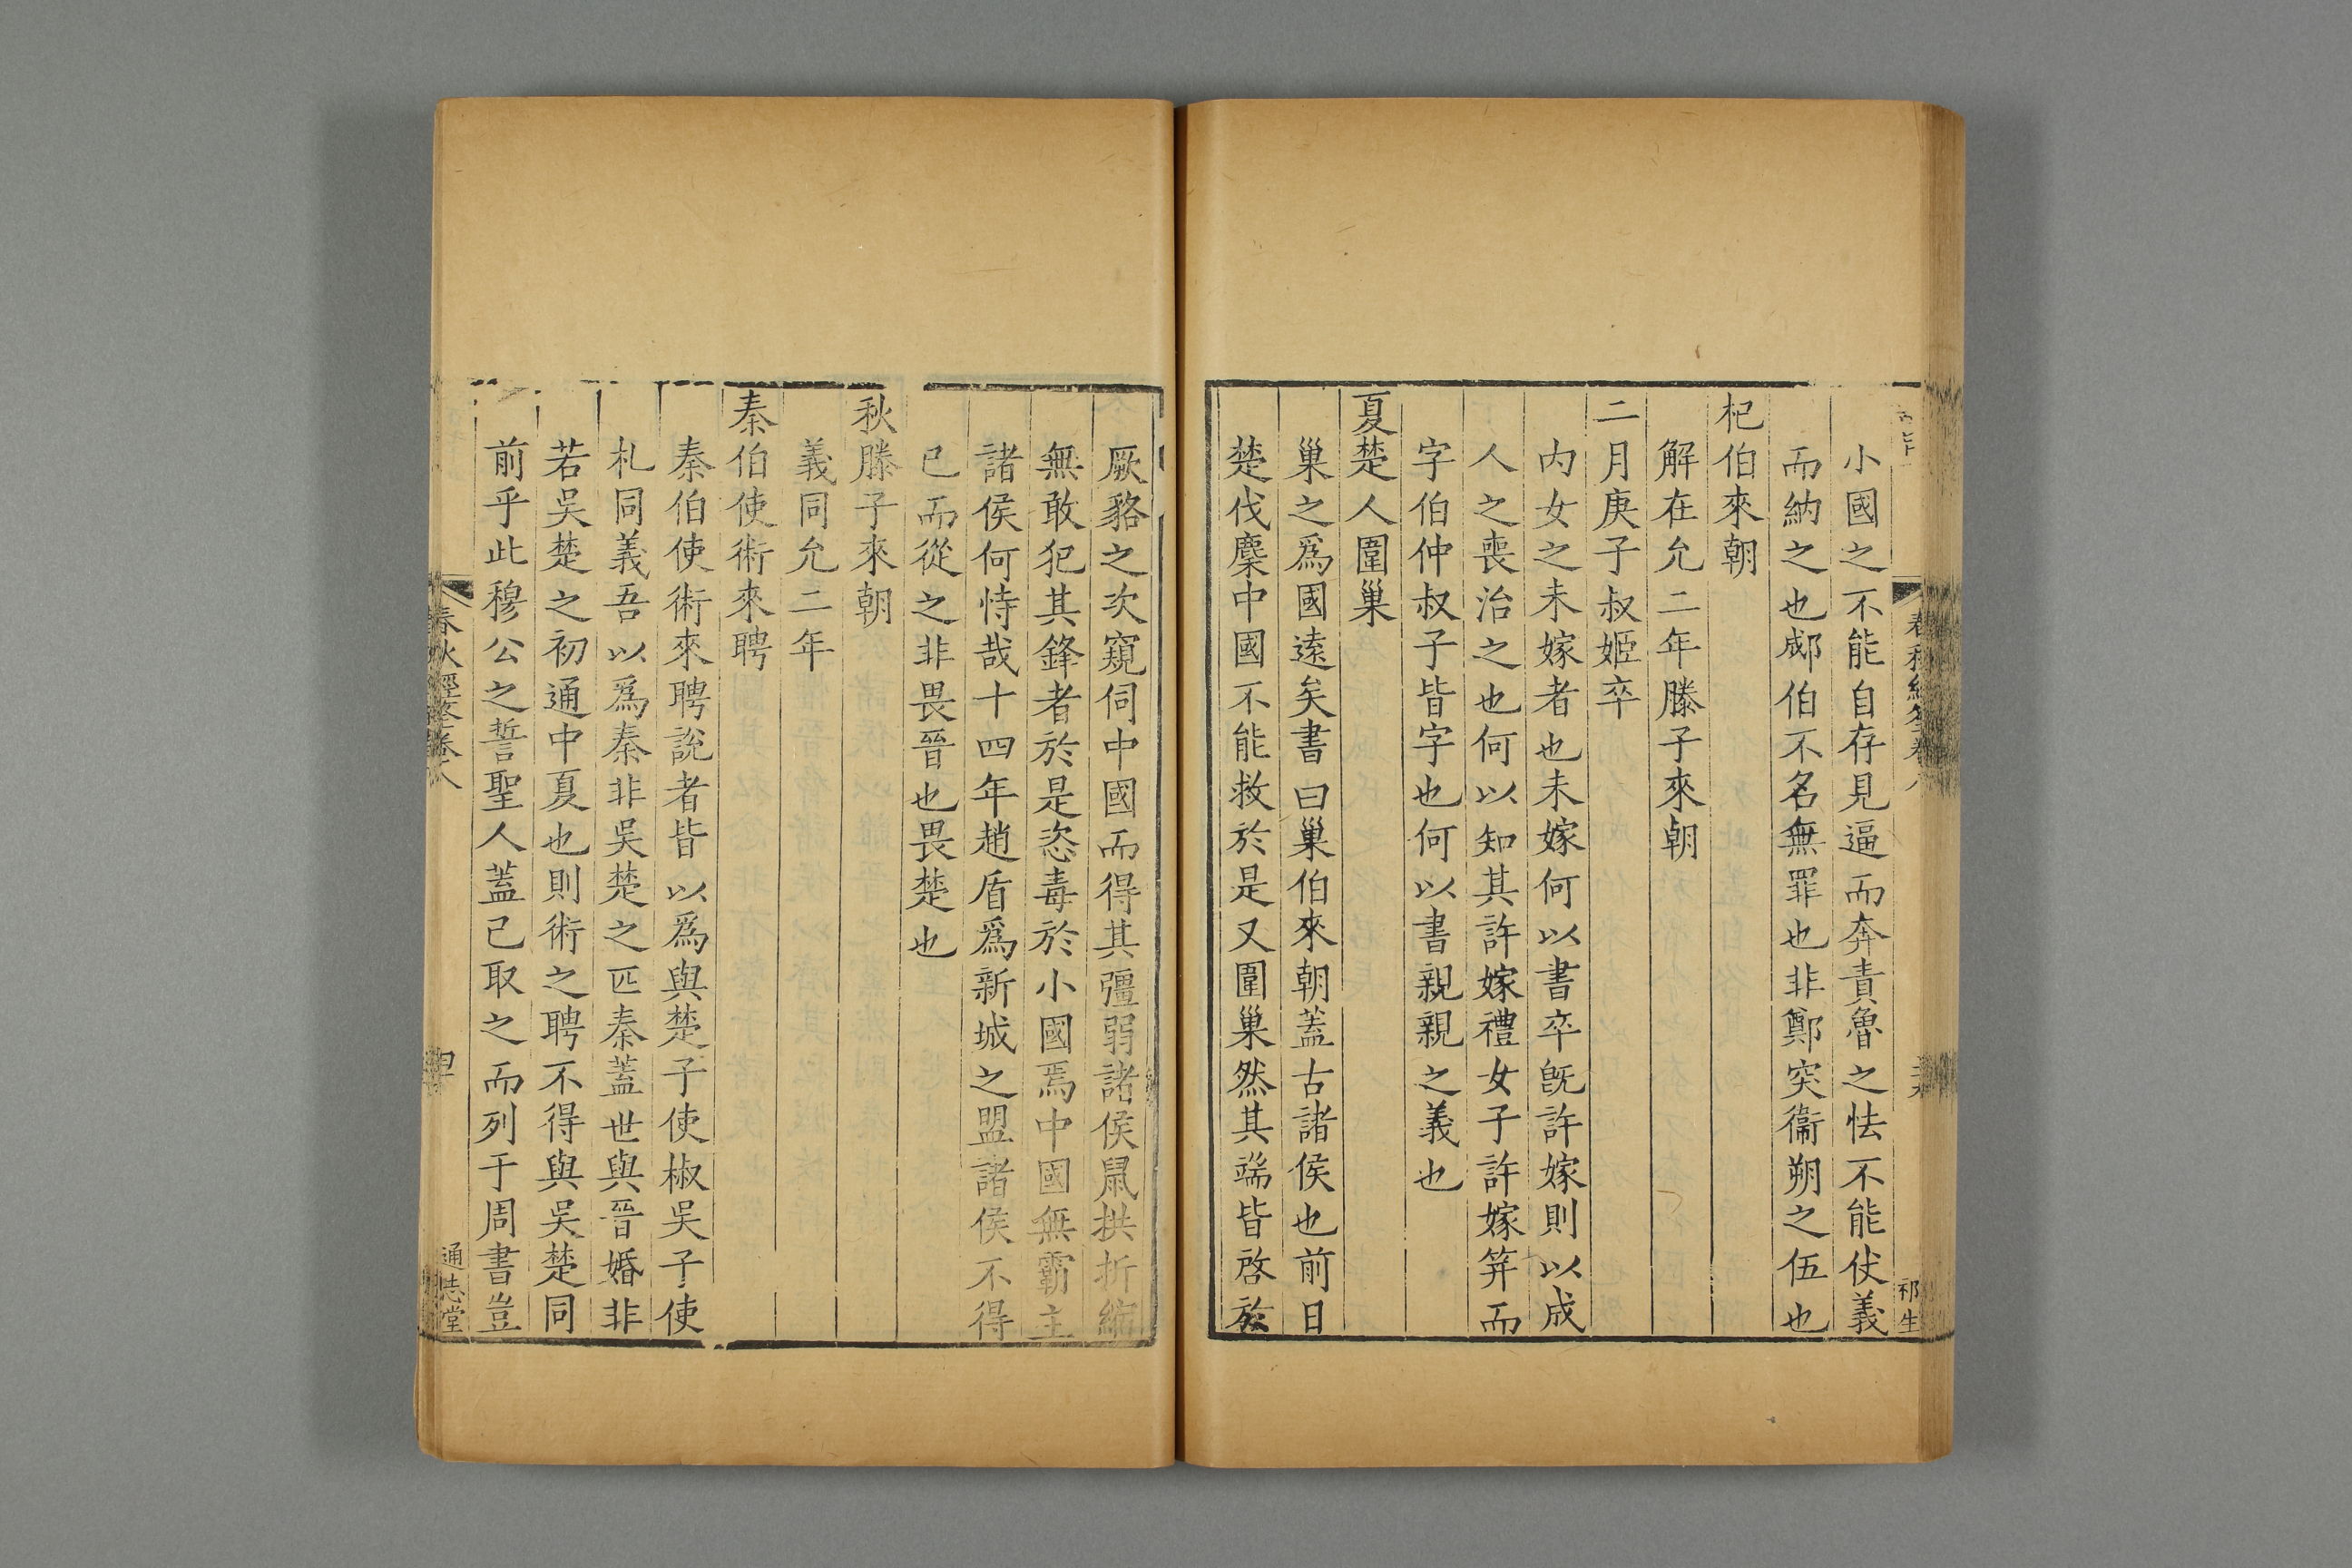 春秋經筌卷八
祁生
小國之不能自存見逼而奔責魯之怯不能仗義
而納之也郕伯不名無罪也非鄭突衞朔之伍也
杞伯來朝
解在允二年滕子來朝
二月庚子叔姬卒
内女之未嫁者也未嫁何以書卒旣許嫁則以成
人之喪治之也何以知其許嫁禮女子許嫁筓而
字伯仲叔子皆字也何以書親親之義也
夏楚人圍巢
巢之爲國遠矣書曰巢伯來朝蓋古諸侯也前日
楚伐麋中國不能救於是又圍巢然其端皆啓於
厥貉之次窺伺中國而得其彊弱諸侯鼠拱折縮
無敢犯其鋒者於是恣毒於小國焉中國無霸主
諸侯何恃哉十四年趙盾爲新城之盟諸侯不得
已而從之非畏晉也畏楚也
秋滕子來朝
義同允二年
秦伯使術來聘
秦伯使術來聘說者皆以爲與楚子使椒吳子使
札同義吾以爲秦非吳楚之匹秦蓋世與晉婚非
若吳楚之初通中夏也則術之聘不得與吳楚同
前乎此穆公之誓聖人蓋已取之而列于周書豈
春秋經筌卷八
四十
通志堂